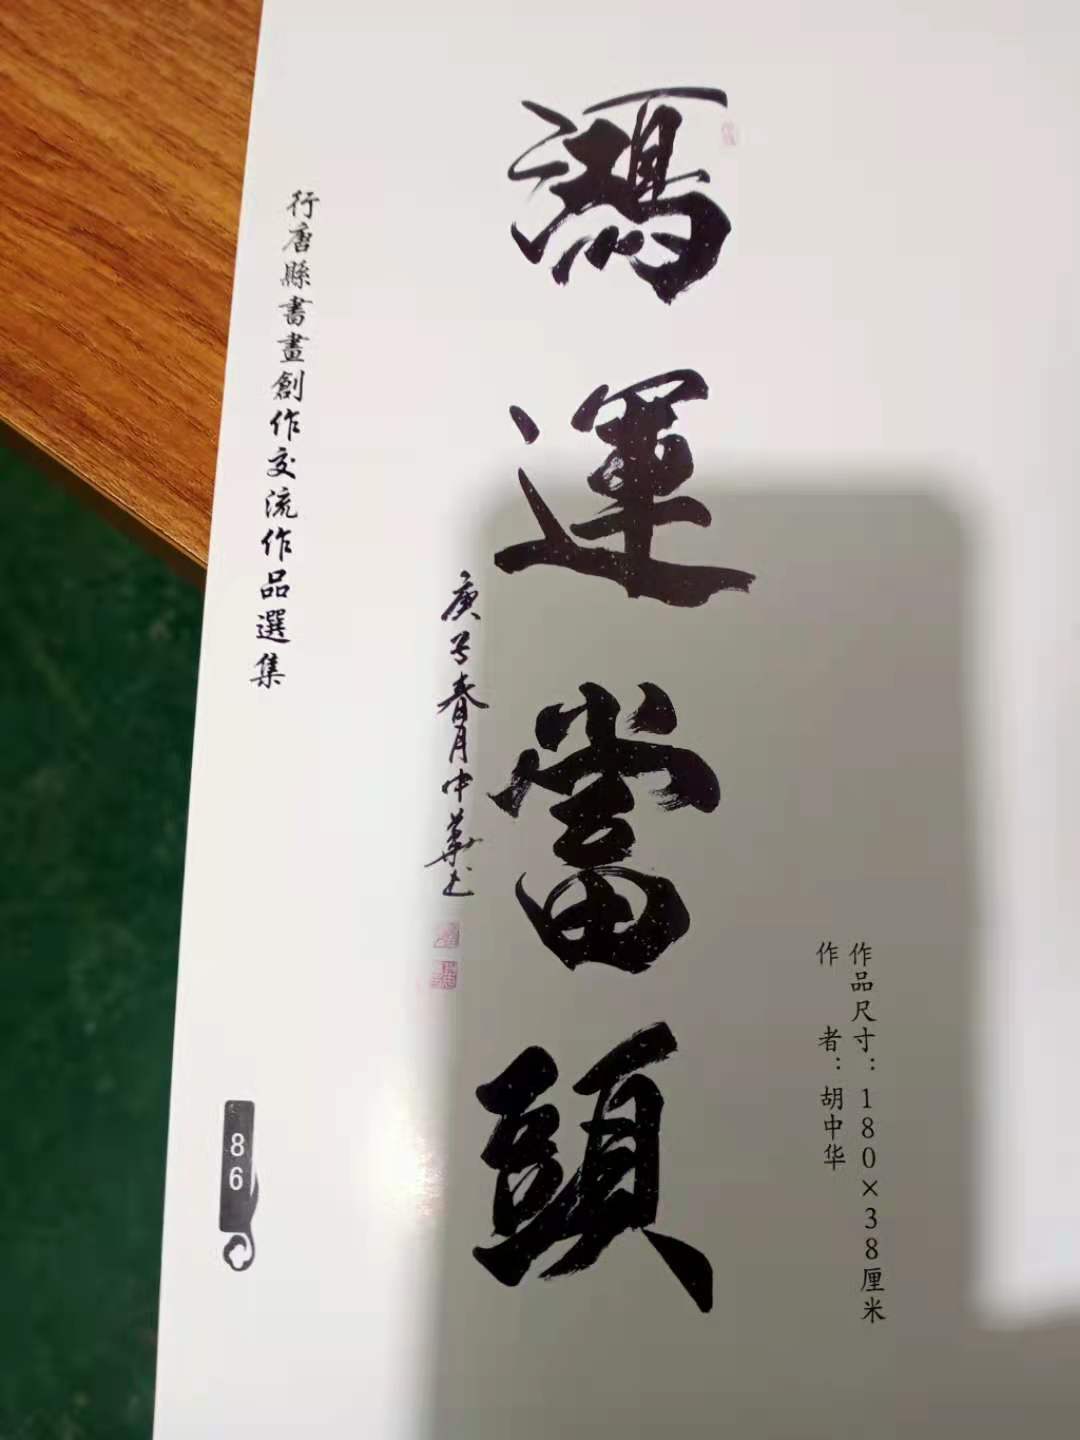 鴻運當頭
庚子春月中華书
作品尺寸：180×38厘米
作者：胡中华
行唐縣書畫創作交流作品選集
86